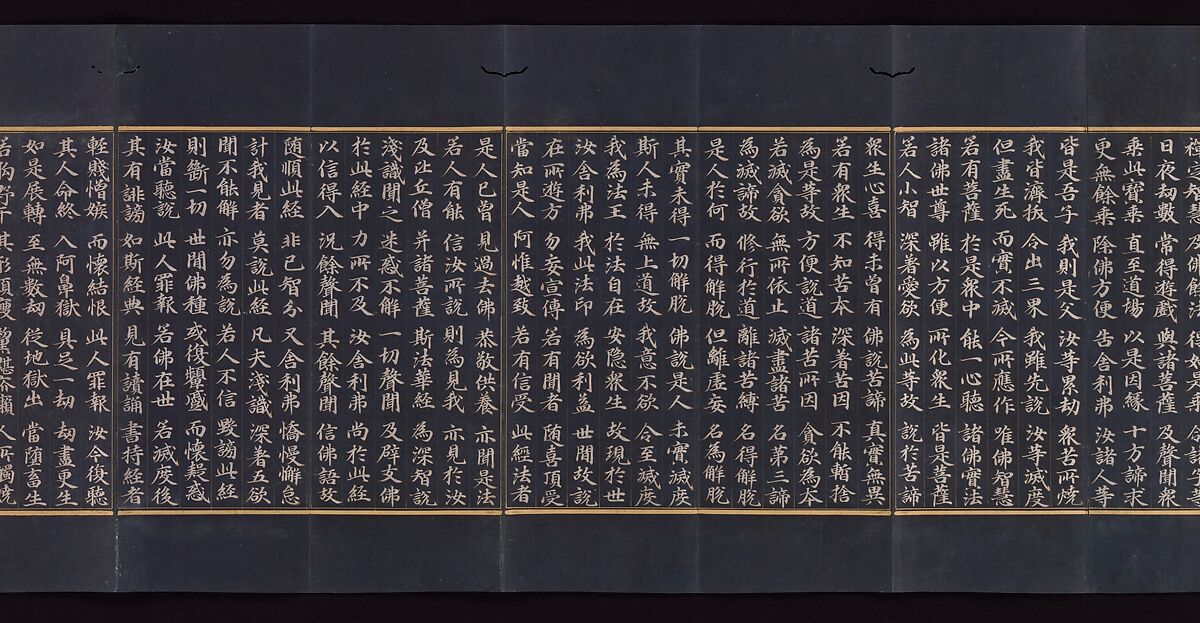 日夜劫數 常得遊戲 與諸菩薩 及聲聞衆
乘此寶乘 直至道場 以是因緣 十方諦求
更無餘乘 除佛方便 告舍利弗 汝諸人等
皆是吾子 我則是父 汝等累劫 衆苦所燒
我皆濟拔 令出三界 我雖先說 汝等滅度
但盡生死 而實不滅 今所應作 唯佛智慧
若有菩薩 於是衆中 能一心聽 諸佛實法
諸佛世尊 雖以方便 所化衆生 皆是菩薩
若人小智 深著愛欲 為此等故 說於苦諦
衆生心喜 得未曾有 佛說苦諦 真實無異
若有衆生 不知苦本 深著苦因 不能暫捨
為是等故 方便說道 諸苦所因 貪欲為本
若滅貪欲 無所依止 滅盡諸苦 名第三諦
為滅諦故 修行於道 離諸苦縛 名得解脫
是人於何 而得解脫 但離虛妄 名為解脫
其實未得 一切解脫 佛說是人 未實滅度
斯人未得 無上道故 我意不欲 令至滅度
我為法王 於法自在 安隐衆生 故現於世
汝舍利弗 我此法印 為欲利益 世間故說
在所遊方 勿妄宣傳 若有聞者 随喜頂受
當知是人 阿惟越致 若有信受 此經法者
是人已曾 見過去佛 恭敬供養 亦聞是法
若人有能 信汝所說 則為見我 亦見於汝
及比丘僧 并諸菩薩 斯法華經 為深智說
淺識聞之 迷惑不解 一切聲聞 及辟支佛
於此經中 力所不及 汝舍利弗 尚於此經
以信得入 況餘聲聞 其餘聲聞 信佛語故
随順此經 非己智分 又舍利弗 憍慢懈怠
計我見者 莫說此經 凡夫淺識 深著五欲
聞不能解 亦勿為說 若人不信 毀謗此經
則斷一切 世間佛種 或復顰蹙 而懷疑惑
汝當聽說 此人罪報 若佛在世 若滅度後
其有誹謗 如斯經典 見有讀誦 書持經者
輕賤憎嫉 而懷結恨 此人罪報 汝今復聽
其人命終 入阿鼻獄 具足一劫 劫盡更生
如是展轉 至無數劫 從地獄出 當随畜生